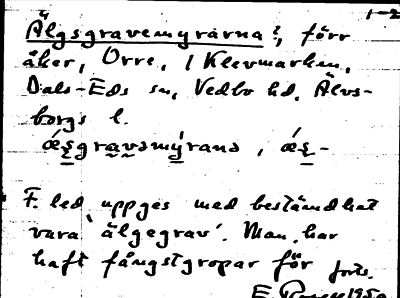 1-2
Älgsgravemyrarna?, förr
åker, Orre, i Klevmarken,
Dals-Eds sn, Vedbo hd, Älvs-
borgs l.
F. led. uppges med bestämdhet
vara 'älgegrav'. Man har
haft fångstgropar för forts.
E. 1950